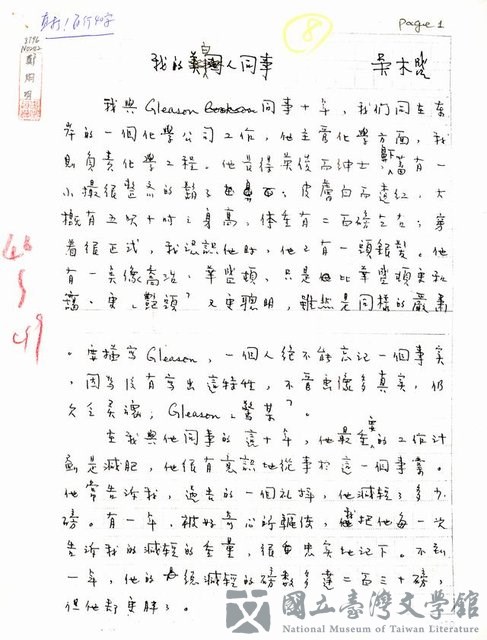 直行！百行42字
page 1
3796
N0282
8
我的白人同事
吳木盛
我與Gleason Bookson同事十年，我們同在東
岸的一個化學公司工作，他主管化學方面，我
則負責化學工程。他長得英俊而紳士，蓄有一
小撮很整齊的鬍子；皮膚白而透紅，大
概有五呎十吋之身高，体重有二百磅左右；穿
着很正式，我認識他時，他已有一頭銀髮。他
有一點像喬治．華盛頓，只是比華盛頓更和
藹、更「艷頭」又更聰明，雖然是同樣的嚴肅
。要描寫Gleason，一個人絕不能忘記一個事實
，因為沒有寫出這特性，不管畫像多真實，仍
欠乏靈魂；Gleason「驚某」。
在我與他同事的這十年，他最重要的工作計
劃是減肥，他很有意識地從事於這一個事業。
他常告訴我，過去的一個礼拜，他減輕了多少
磅。有一年，被好奇心所驅使，我把他每一次
告訴我的減輕的重量，很忠實地記下。不到
一年，他的總減輕的磅數多達二百三十磅，
但他卻更胖了。
48
49
國立臺灣文學館
National Museum of Taiwan Literature